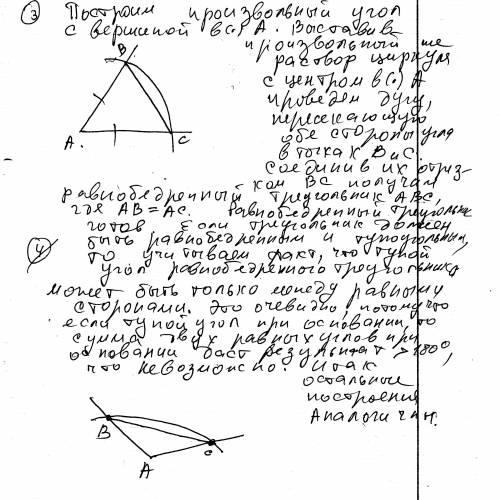 3 Построим произвольный угол
с вершиной в (·) A. Выставив
произвольный же
раствор циркуля
с центром в (·) A
проведем дугу,
пересекающую
обе стороны угла
в точках B и C.
Соединив их отрез-
ком BC получаем
равнобедренный треугольник ABC,
где AB = AC. Равнобедренный треугольник
готов Если треугольник должен
быть равнобедренным и тупоугольным,
4 то учитываем факт, что тупой
угол равнобедренного треугольника
может быть только между равными
сторонами. Это очевидно, потому что
если тупой угол при основании, то
сумма двух равных углов при
основании даст результат > 180°,
что невозможно. Итак
остальные
построения
Аналогичн.
B
A
C
B
A
C